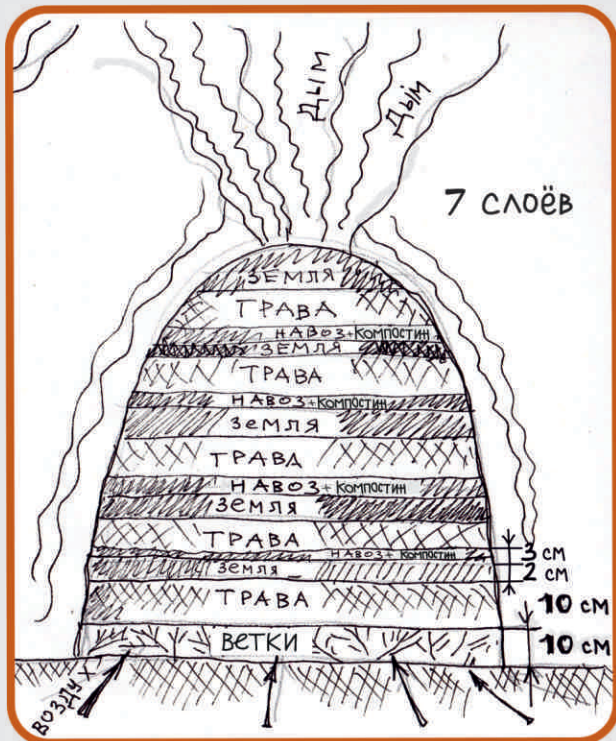 Дым
Дым
7 слоёв
ЗЕМЛЯ
ТРАВА
НАВОЗ+Компостин
ЗЕМЛЯ
ТРАВА
НАВОЗ+Компостин
ЗЕМЛЯ
ТРАВА
НАВОЗ+Компостин
ЗЕМЛЯ
ТРАВА
НАВОЗ+ Компостин
3 см
ЗЕМЛЯ
2 см
ТРАВА
10 см
ВЕТКИ
10 см
ВОЗДУХ